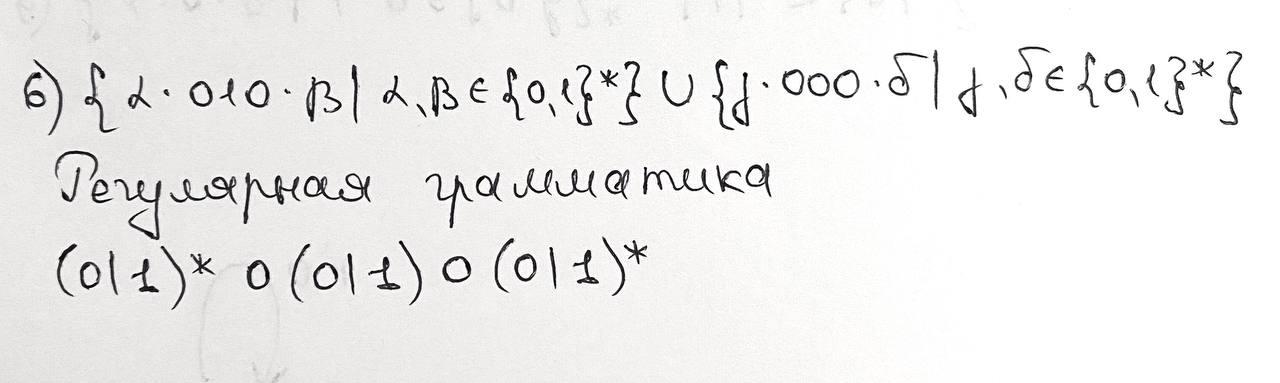 б) { α · 010 · β | α, β ∈ {0,1}* } ∪ { γ · 000 · δ | γ, δ ∈ {0,1}* }
Регулярная грамматика
(0|1)* 0 (0|1) 0 (0|1)*